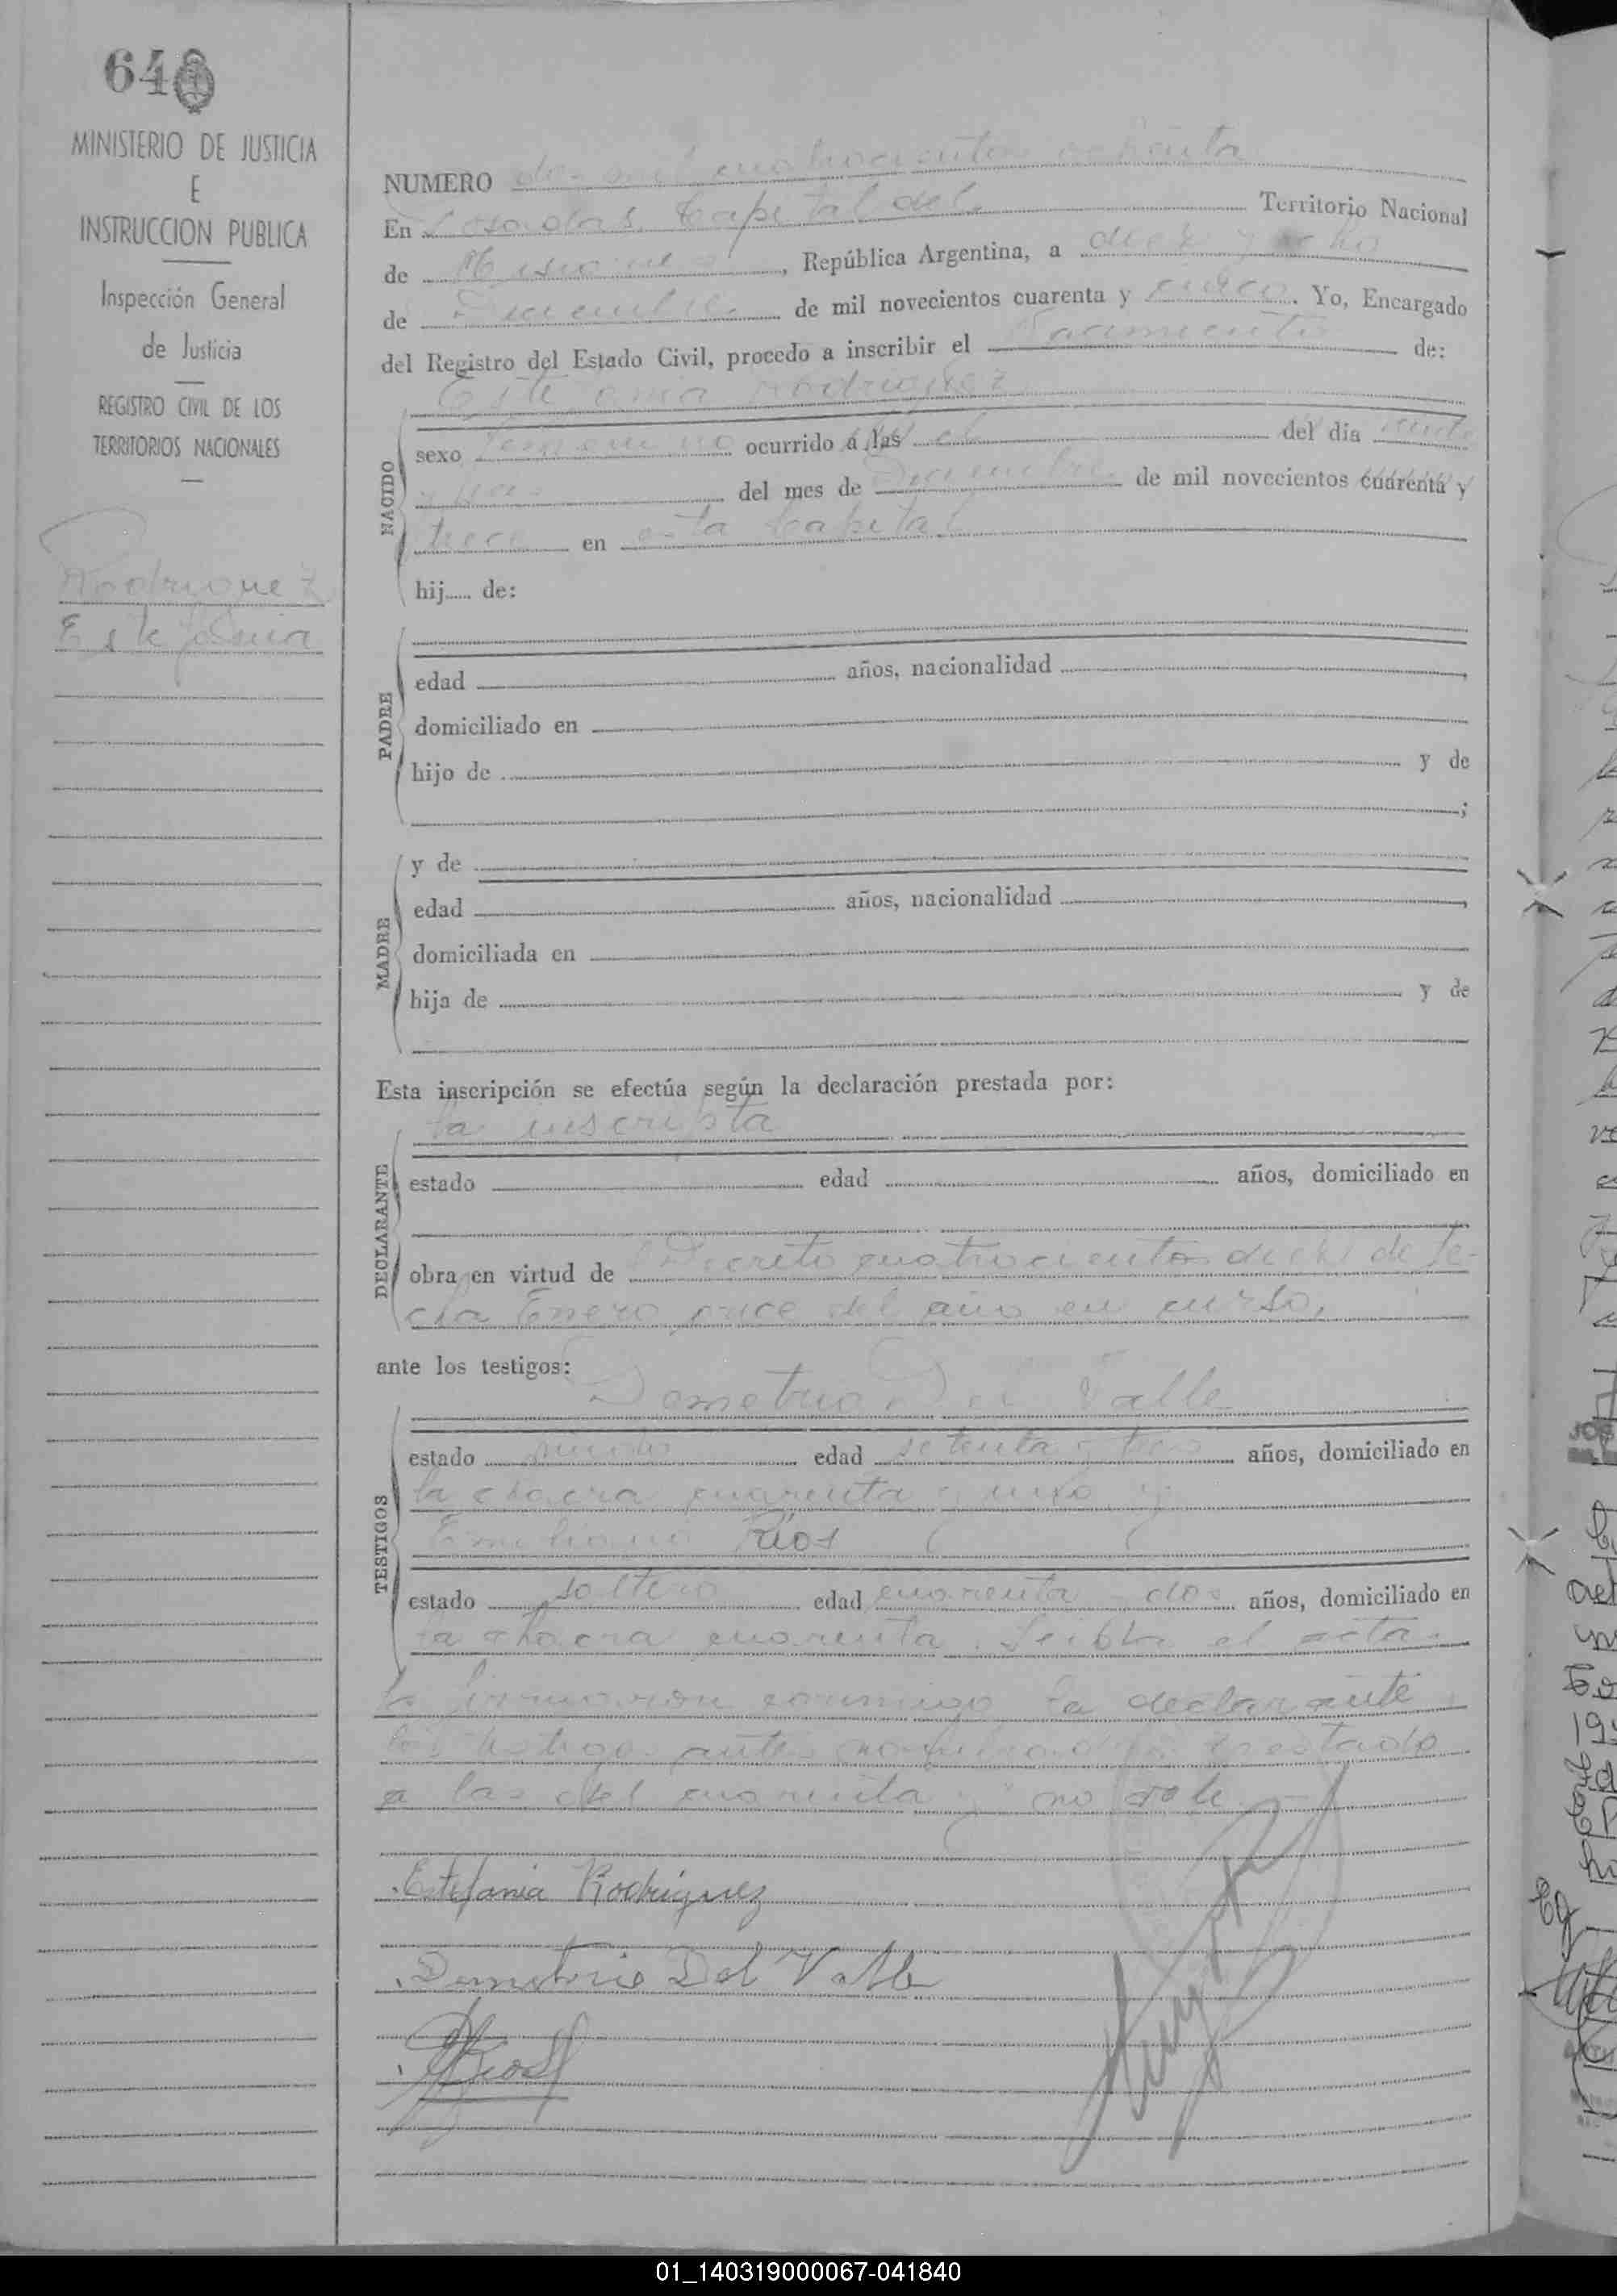 640
MINISTERIO DE JUSTICIA
E
INSTRUCCION PUBLICA
Inspección General
de Justicia
REGISTRO CIVIL DE LOS
TERRITORIOS NACIONALES
Rodriguez
Estefania
NUMERO dos mil cuatrocientos ochenta
En Posadas Capital del Territorio Nacional
de Misiones, República Argentina, a diez y ocho
de Diciembre de mil novecientos cuarenta y cinco. Yo, Encargado
del Registro del Estado Civil, procedo a inscribir el nacimiento de:
Estefania Rodriguez
NACIDO
sexo femenino ocurrido á las el del día veinte
del mes de Diciembre de mil novecientos cuarenta y
trece en esta Capital
hij..... de:
PADRE
edad años, nacionalidad
domiciliado en
hijo de y de
;
MADRE
y de
edad años, nacionalidad
domiciliada en
hija de y de
Esta inscripción se efectúa según la declaración prestada por:
la inscripta
DECLARANTE
estado edad años, domiciliado en
obra en virtud de Decreto cuatrocientos de fe-
cha Enero once del año en curso,
ante los testigos:
Demetrio Del Valle
TESTIGOS
estado viudo edad setenta y tres años, domiciliado en
la chacra cuarenta y uno y
Emiliano Rios
estado soltero edad cuarenta dos años, domiciliado en
la chacra cuarenta. Leida el acta
la firmaron conmigo la declarante
los testigos antes nombrados testado
a las del cuarenta y no vale
Estefania Rodriguez
Demetrio Del Valle
Rios
01_140319000067-041840